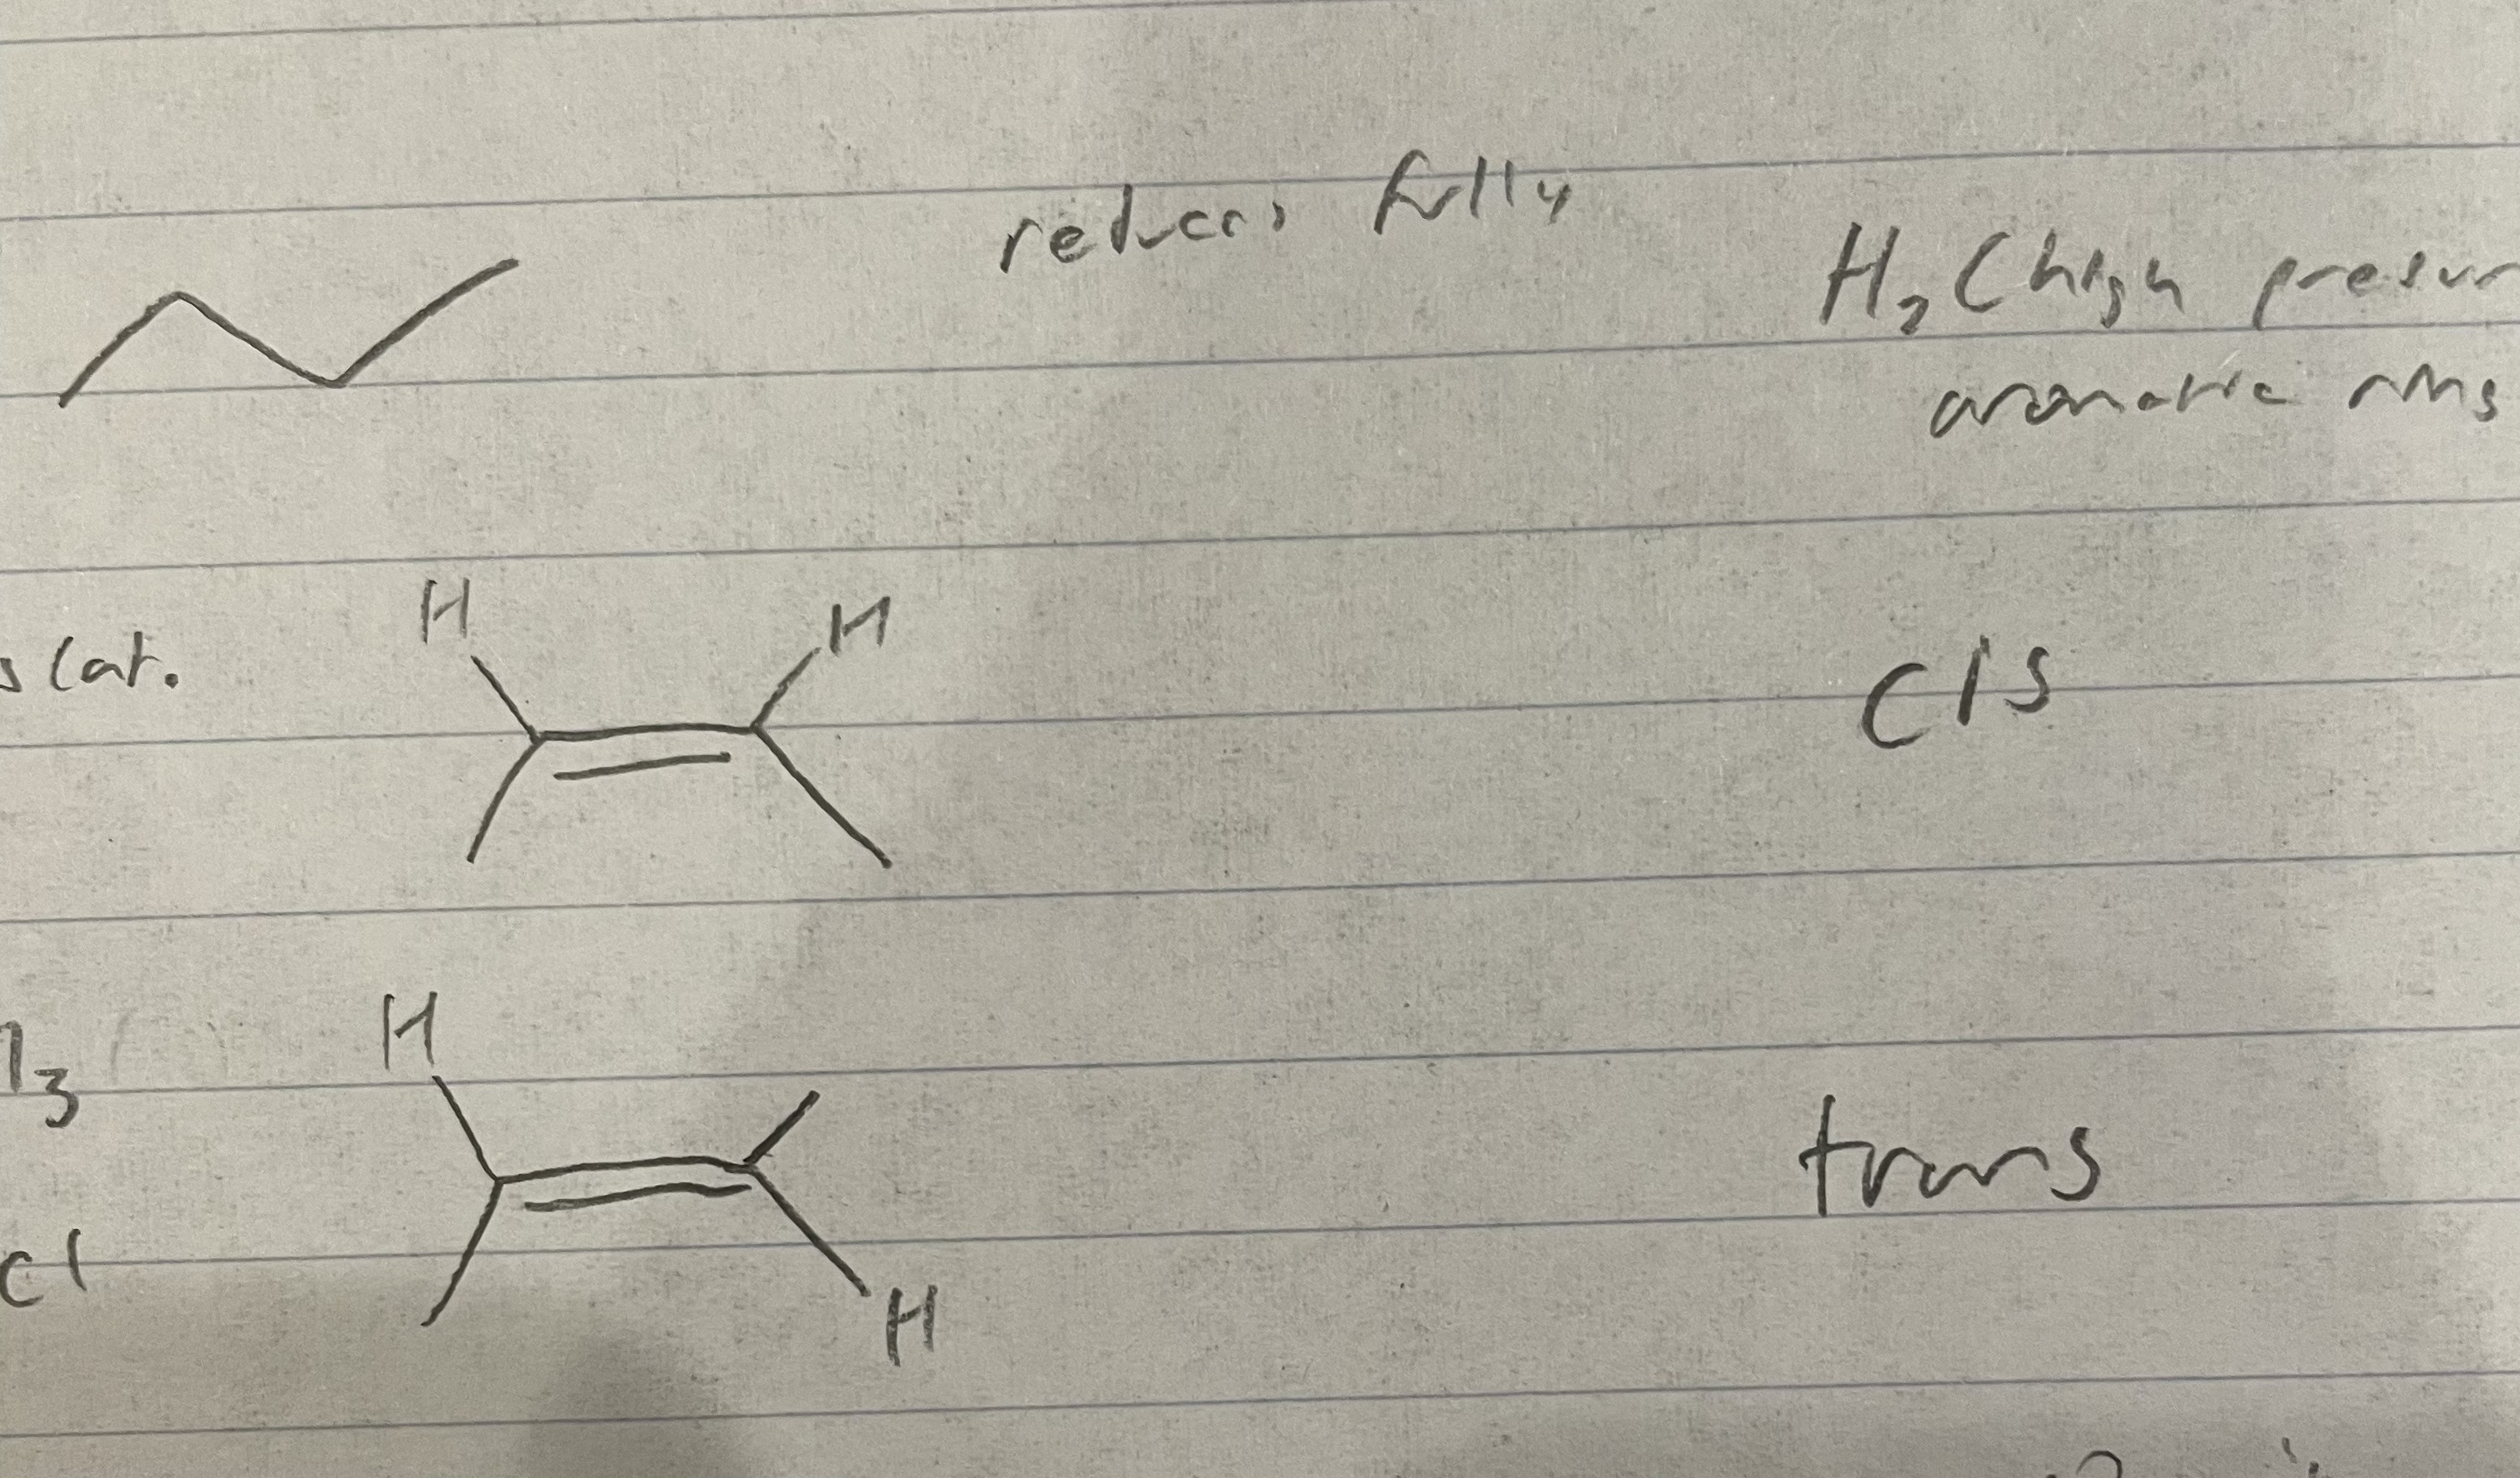 reduces fully
H2 (high presur
aromatic rings
s cat.
H H
cis
H
3
trans
cl
H